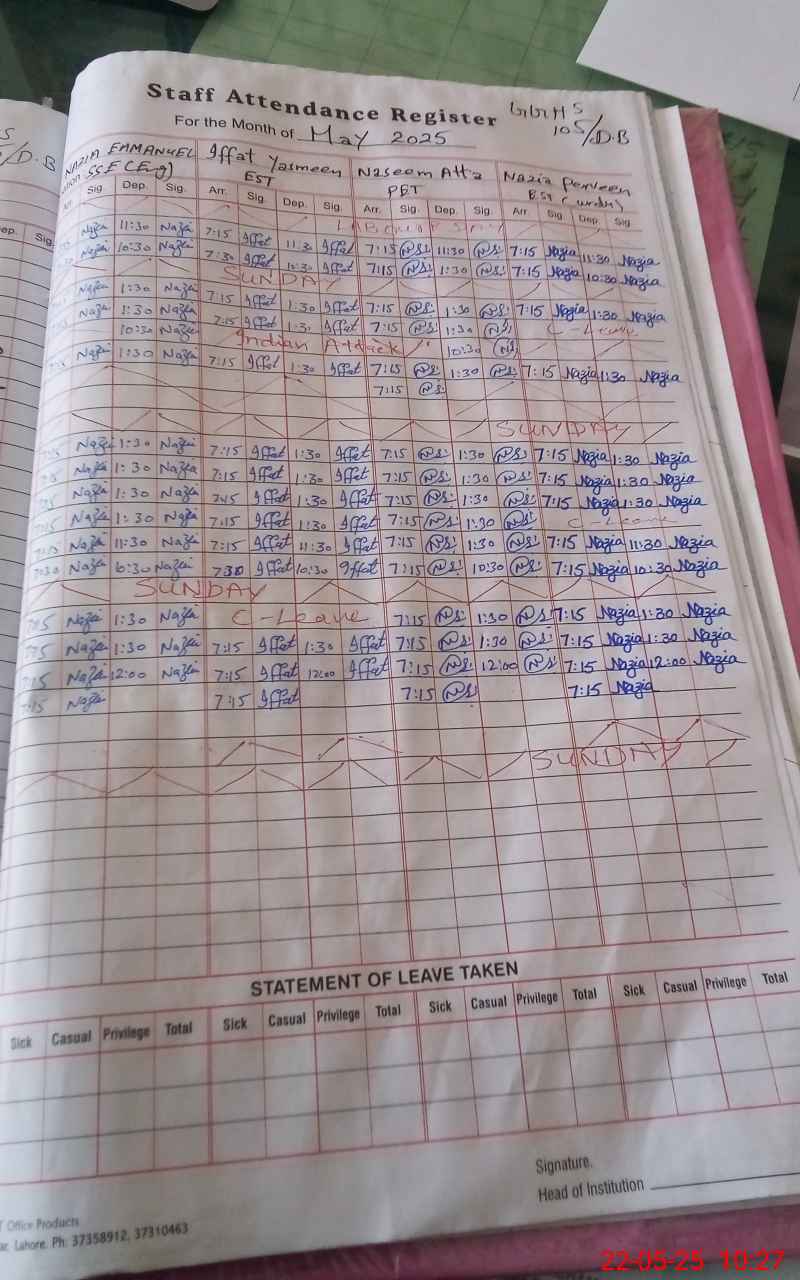 Staff Attendance Register GGHS
For the Month of May 2025 105/D.B
NAZIA EMMANUEL Iffat Yasmeen Naseem Atta Nazia Perveen
SSE (Eng) EST PET EST (urdu)
Sig. Dep. Sig. Arr. Sig. Dep. Sig. Arr. Sig. Dep. Sig. Arr. Sig. Dep. Sig.
Nazia 11:30 Nazia 7:15 Iffat 11:30 Iffat 7:15 N.S. 11:30 N.S. 7:15 Nazia 11:30 Nazia
Nazia 10:30 Nazia 7:30 Iffat 10:30 Iffat 7:15 N.S. 1:30 N.S. 7:15 Nazia 10:30 Nazia
SUNDAY
Nazia 1:30 Nazia 7:15 Iffat 1:30 Iffat 7:15 N.S. 1:30 N.S. 7:15 Nazia 1:30 Nazia
Nazia 1:30 Nazia 7:15 Iffat 1:30 Iffat 7:15 N.S. 1:30 N.S. C-Leave
10:30 Nazia Indian Attack 10:30 N.S.
Nazia 1:30 Nazia 7:15 Iffat 1:30 Iffat 7:15 N.S. 1:30 N.S. 7:15 Nazia 1:30 Nazia
7:15 N.S.
SUNDAY
7:15 Nazia 1:30 Nazia 7:15 Iffat 1:30 Iffat 7:15 N.S. 1:30 N.S. 7:15 Nazia 1:30 Nazia
Nazia 1:30 Nazia 7:15 Iffat 1:30 Iffat 7:15 N.S. 1:30 N.S. 7:15 Nazia 1:30 Nazia
Nazia 1:30 Nazia 7:45 Iffat 1:30 Iffat 7:15 N.S. 1:30 N.S. 7:15 Nazia 1:30 Nazia
7:15 Nazia 1:30 Nazia 7:15 Iffat 1:30 Iffat 7:15 N.S. 1:30 N.S. C-Leave
7:15 Nazia 11:30 Nazia 7:15 Iffat 11:30 Iffat 7:15 N.S. 1:30 N.S. 7:15 Nazia 11:30 Nazia
7:30 Nazia 10:30 Nazia 7:30 Iffat 10:30 Iffat 7:15 N.S. 10:30 N.S. 7:15 Nazia 10:30 Nazia
SUNDAY
7:15 Nazia 1:30 Nazia C-Leave 7:15 N.S. 1:30 N.S. 7:15 Nazia 1:30 Nazia
7:15 Nazia 1:30 Nazia 7:15 Iffat 1:30 Iffat 7:15 N.S. 1:30 N.S. 7:15 Nazia 1:30 Nazia
7:15 Nazia 12:00 Nazia 7:15 Iffat 12:00 Iffat 7:15 N.S. 12:00 N.S. 7:15 Nazia 12:00 Nazia
7:15 Nazia 7:15 Iffat 7:15 N.S. 7:15 Nazia
SUNDAY
STATEMENT OF LEAVE TAKEN
Sick Casual Privilege Total Sick Casual Privilege Total Sick Casual Privilege Total Sick Casual Privilege Total
Signature.
Head of Institution
Office Products
Lahore. Ph: 37358912, 37310463
22-05-25 10:27